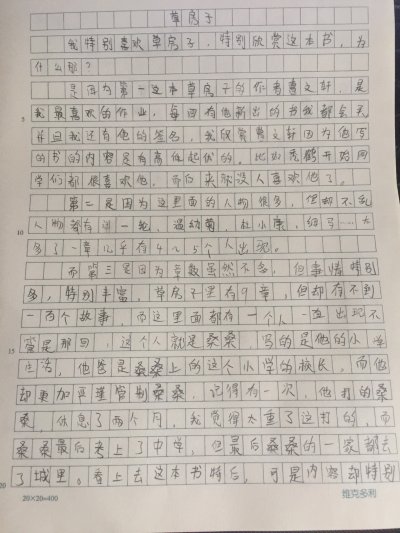 草房子
我特别喜欢草房子，特别欣赏这本书，为
什么那？
是因为第一这本草房子的作者曹文轩，是
我最喜欢的作业，每回有他新出的书我都会买
并且我还有他的签名，我欣赏曹文轩因为他写
的书的内容是有高低起伏的。比如秃鹤开始同
学们都很喜欢他，而后来就没人喜欢他了。
第二是因为这里面的人物很多，但却不乱
人物都有讲一轮，温幼菊，杜小康，细马……太
多了一章几乎有4~5个人出现。
而第三是因为章数虽然不多，但事情特别
多，特别丰富，草房子里有9章，但却有不到
一百个故事，而这里面都有一个人一直出现不
管是那回，这个人就是桑桑，写的是他的小学
生活，他爸是桑桑上的这个小学的校长，而他
却更加严谨管制桑桑，记得有一次，他打的桑
桑，休息了两个月，我觉得太重了这打的，而
桑桑最后考上了中学，但最后桑桑的一家都去
了城里。看上去这本书特后，可是内容却特别
5
10
15
20
20×20=400
维克多利